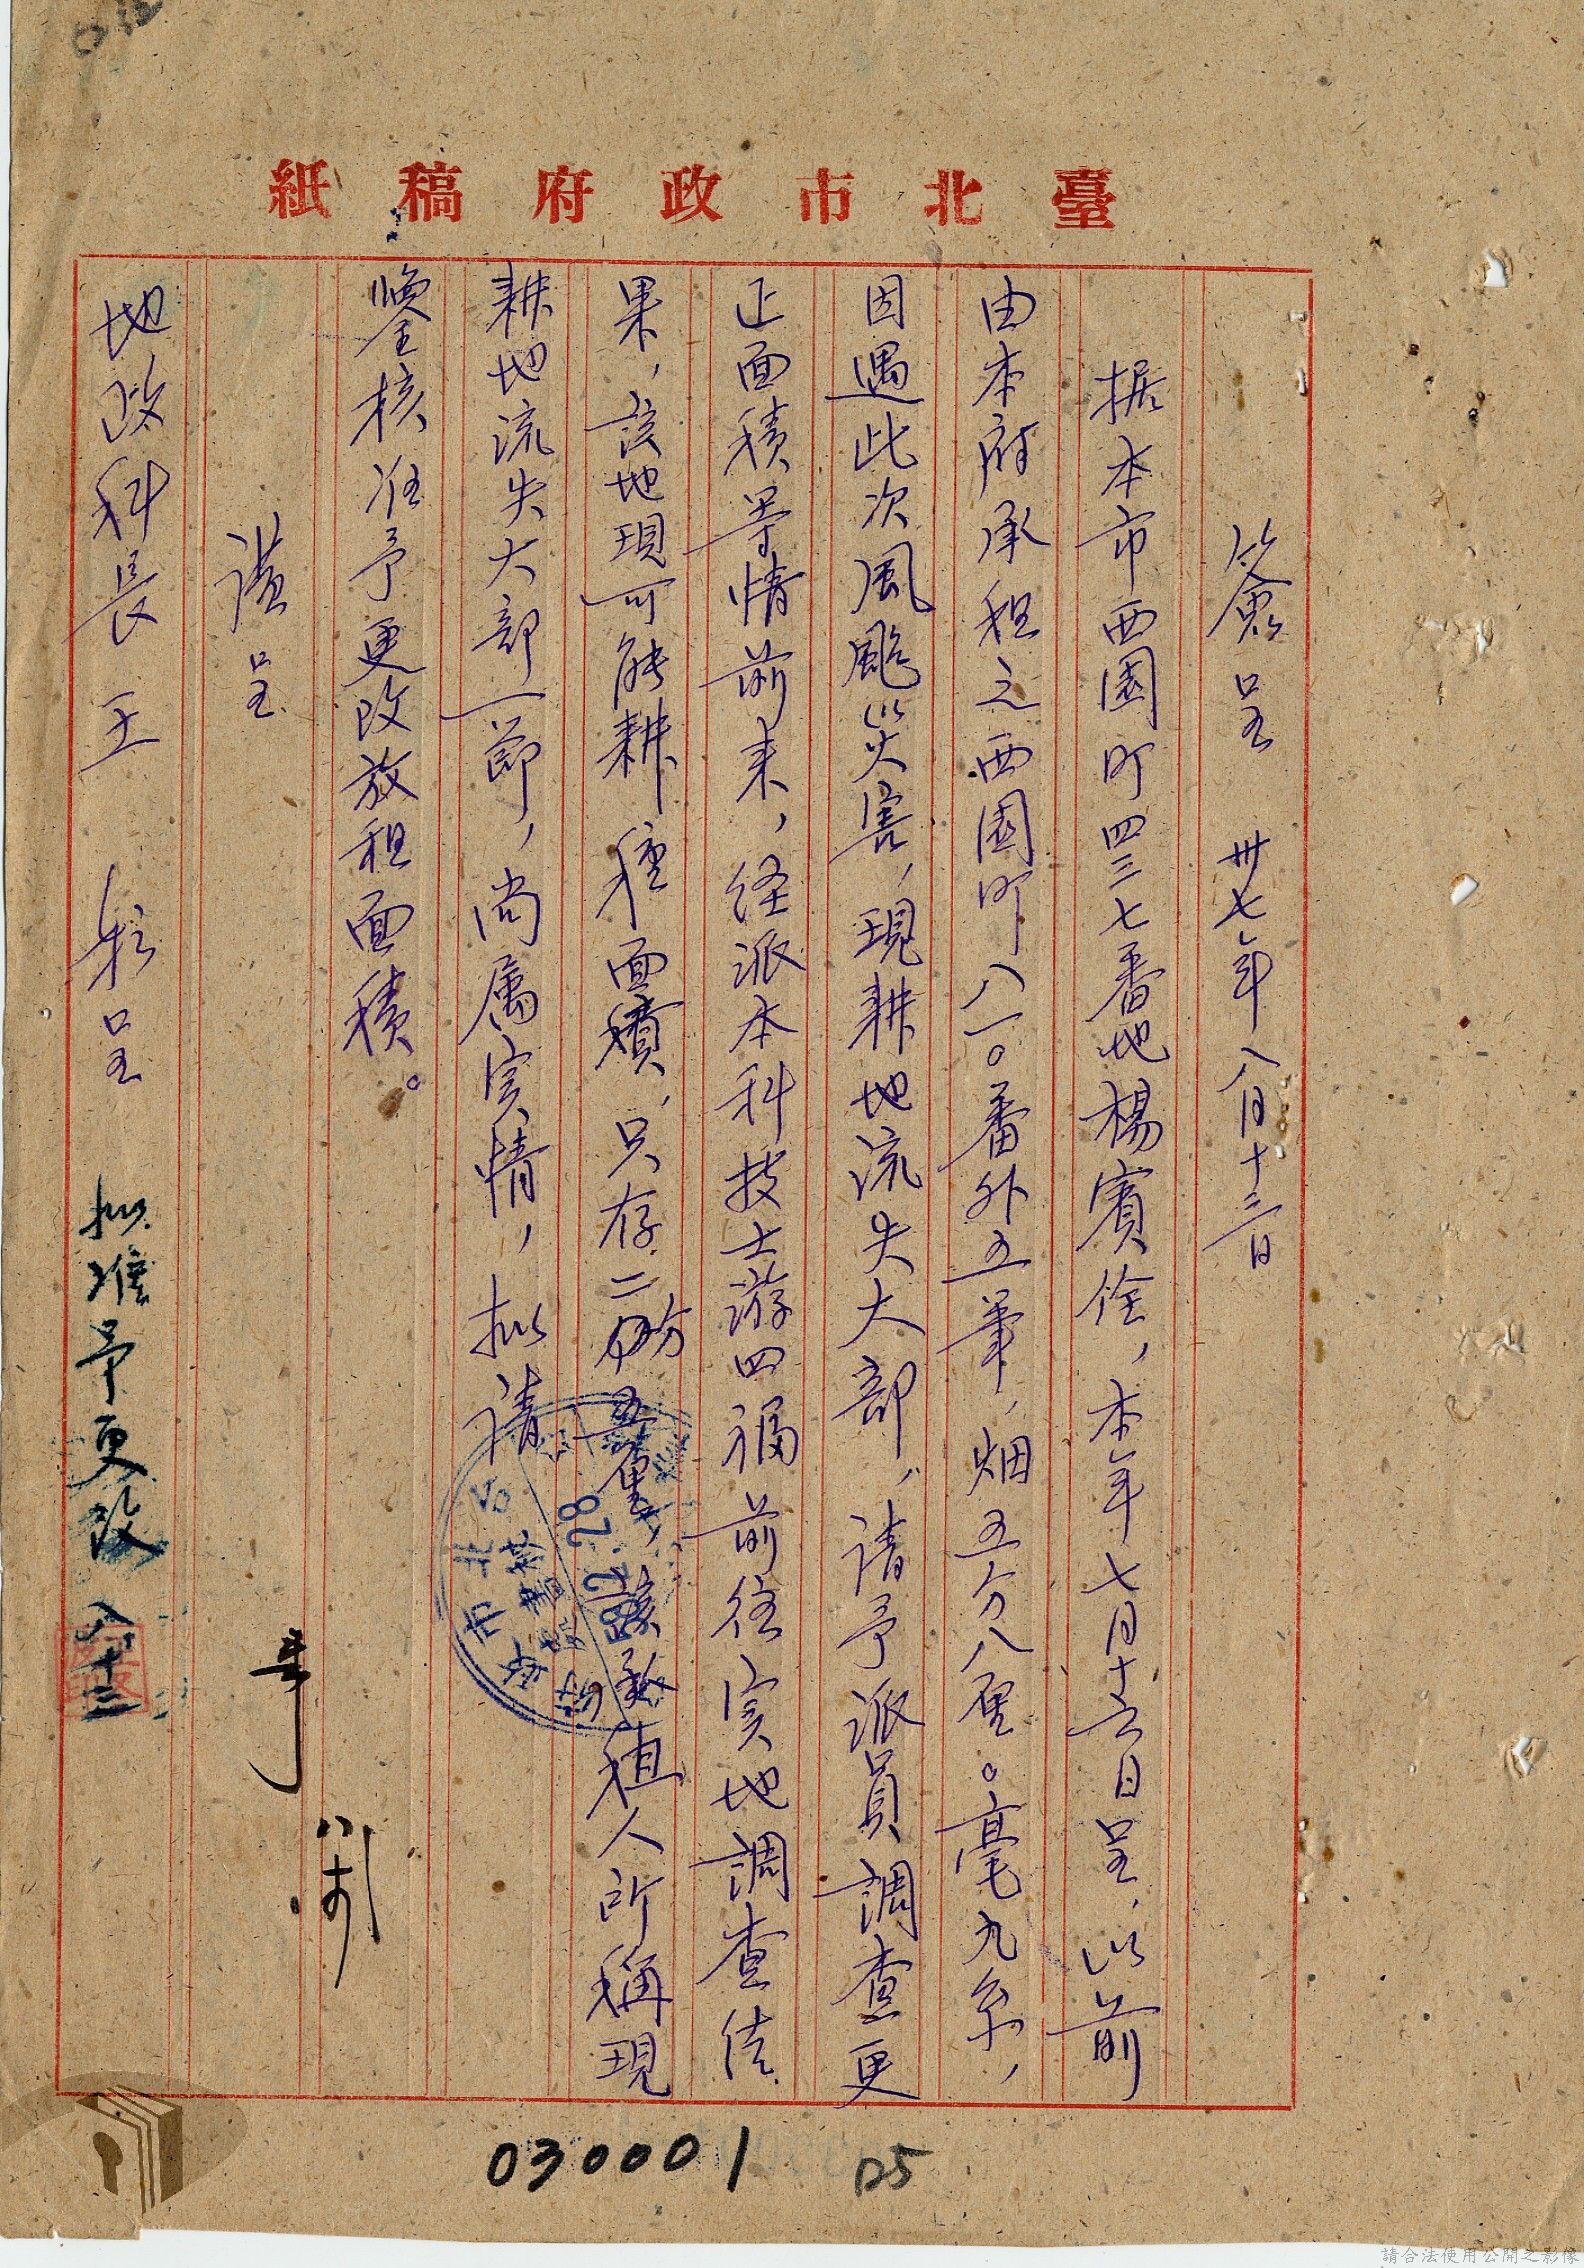 臺北市政府稿紙
簽呈 卅七年八月十三日
据本市西園町四三七番地楊賓徐,本年七月十六日呈,以前
由本府承租之西園町八一〇番外五筆,畑五分八厘〇毫九糸,
因遇此次風颱災害,現耕地流失大部,請予派員調查更
正面積等情前来,経派本科技士游四福前往実地調查结
果,該地現可能耕種面積,只存二分五厘,該承租人所稱現
耕地流失大部一節,尚属实情,拟請
鑒核准予更改放租面積。
謹呈
地政科長王 呈
拟准予更改 八十三
台北市政 82.2.28
030001 125
請合法使用公開之影像